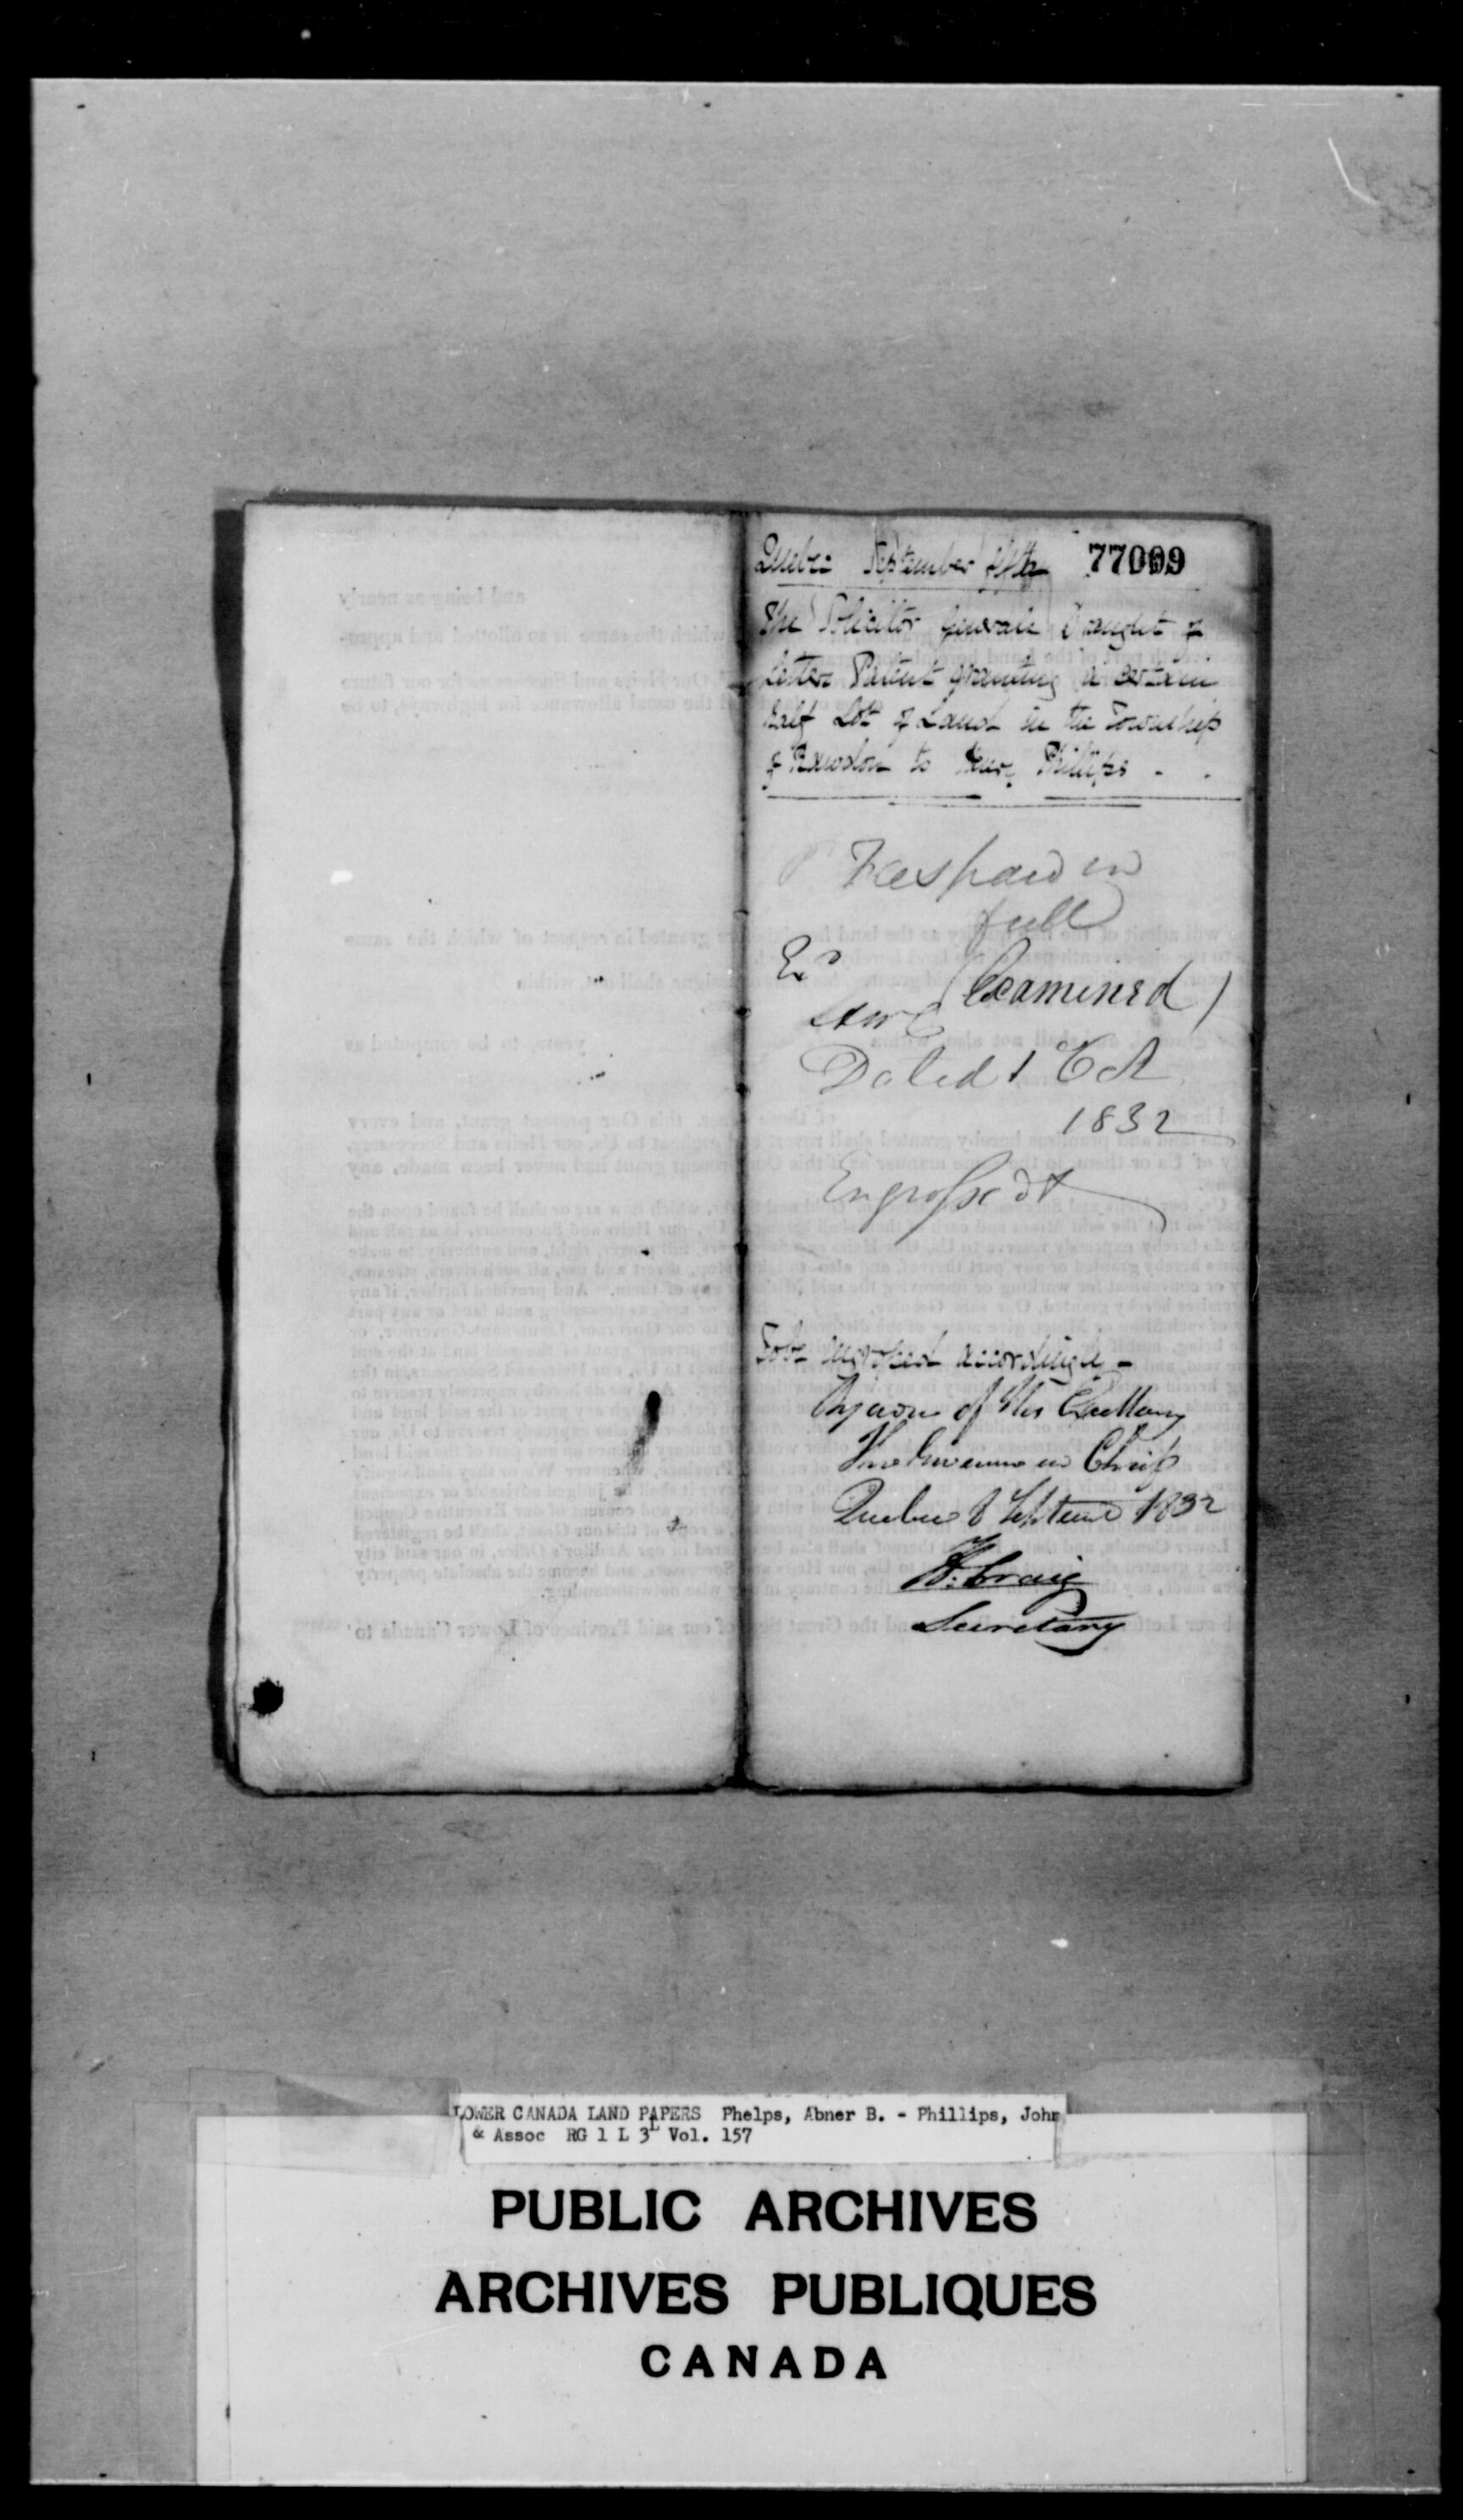 Quebec September fifth 77009
The Solicitor General Draught of
Letters Patent granting a certain
half Lot of Land in the Township
of Rawdon to Phillips - -
Fees paid in
full
Exd
(Examined)
Dated 1 Oct
1832
Engrossed
To be engrossed accordingly -
By order of His Excellency
The Governor in Chief
Quebec 8 September 1832
H: Craig
Secretary
LOWER CANADA LAND PAPERS Phelps, Abner B. - Phillips, John
& Assoc RG 1 L 3L Vol. 157
PUBLIC ARCHIVES
ARCHIVES PUBLIQUES
CANADA